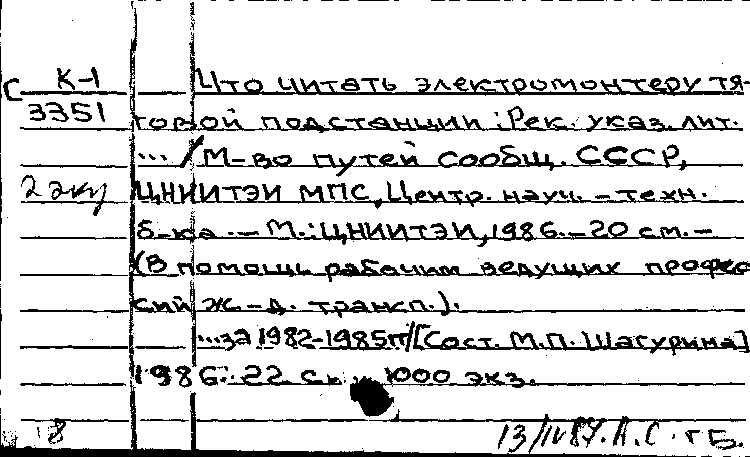 С К-1 Что читать электромонтеру тя-
3351 говой подстанции : Рек. указ. лит.
... / М-во путей сообщ. СССР,
2 экз ЦНИИТЭИ МПС, Центр. науч. - техн.
б-ка .- М.: ЦНИИТЭИ, 1986.- 20 см. -
(В помощь рабочим ведущих профес
сий ж-д. трансп.).
...за 1982-1985гг/[Сост. М.П. Шагурина]
1986. 22 с. 1000 экз.
18 13/IV 87. А.С. ГБ.